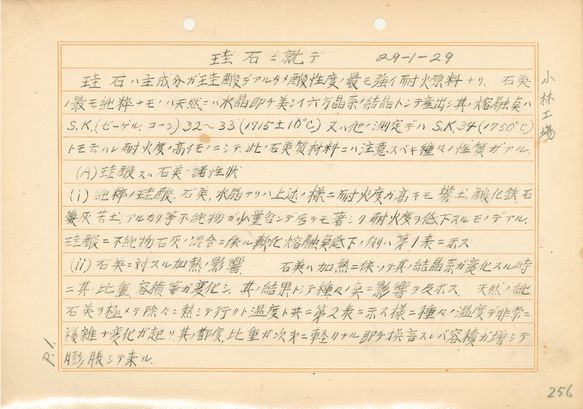 珪石ニ就テ 29-1-29
珪石ハ主成分ガ珪酸デアルカメ酸性度ノ最モ強イ耐火原料ナリ. 石英
ノ最モ純粋ナモノハ天然ニハ水晶即チ美シイ六方晶系ノ結晶トシテ産出シ其ノ熔融点ハ
S.K.(ゼーゲル.コーン) 32〜33 (1715±10°C) 又ハ他ノ測定デハ S.K.34 (1750°C)
トモ云ハレ耐火度ノ高イモノニシテ此ノ石英質材料ニハ注意スベキ種々ノ性質ガアル.
(A) 珪酸又ハ石英ノ諸性状
(i) 純粋ノ珪酸、石英、水晶ナリハ上述ノ様ニ耐火度ガ高キモ礬土酸化鉄石
灰苦土アルカリ等不純物ガ少量合シテ居テモ著シク耐火度ヲ低下スルモノデアル.
珪酸ニ不純物石灰ノ混合ニ依ル軟化熔融点低下ノ例ハ第1表ニ示ス
(ii) 石英ニ対スル加熱ノ影響. 石英ハ加熱ニ依ツテ其ノ結晶系ガ変化スル時
ニ其ノ比重、容積等ガ変化シ、其ノ結果トシテ種々ノ影響ヲ及ボス. 天然ノ純
石英ヲ極メテ除々ニ熱シテ行クト温度ト共ニ第2表ニ示ス様ニ種々ノ温度デ非常ニ
複雑ナ変化ガ起リ其ノ都度比重ガ次第ニ軽クナル即チ換言スレバ容積ガ増シテ
膨脹シテ来ル.
小林工場
P.1.
256